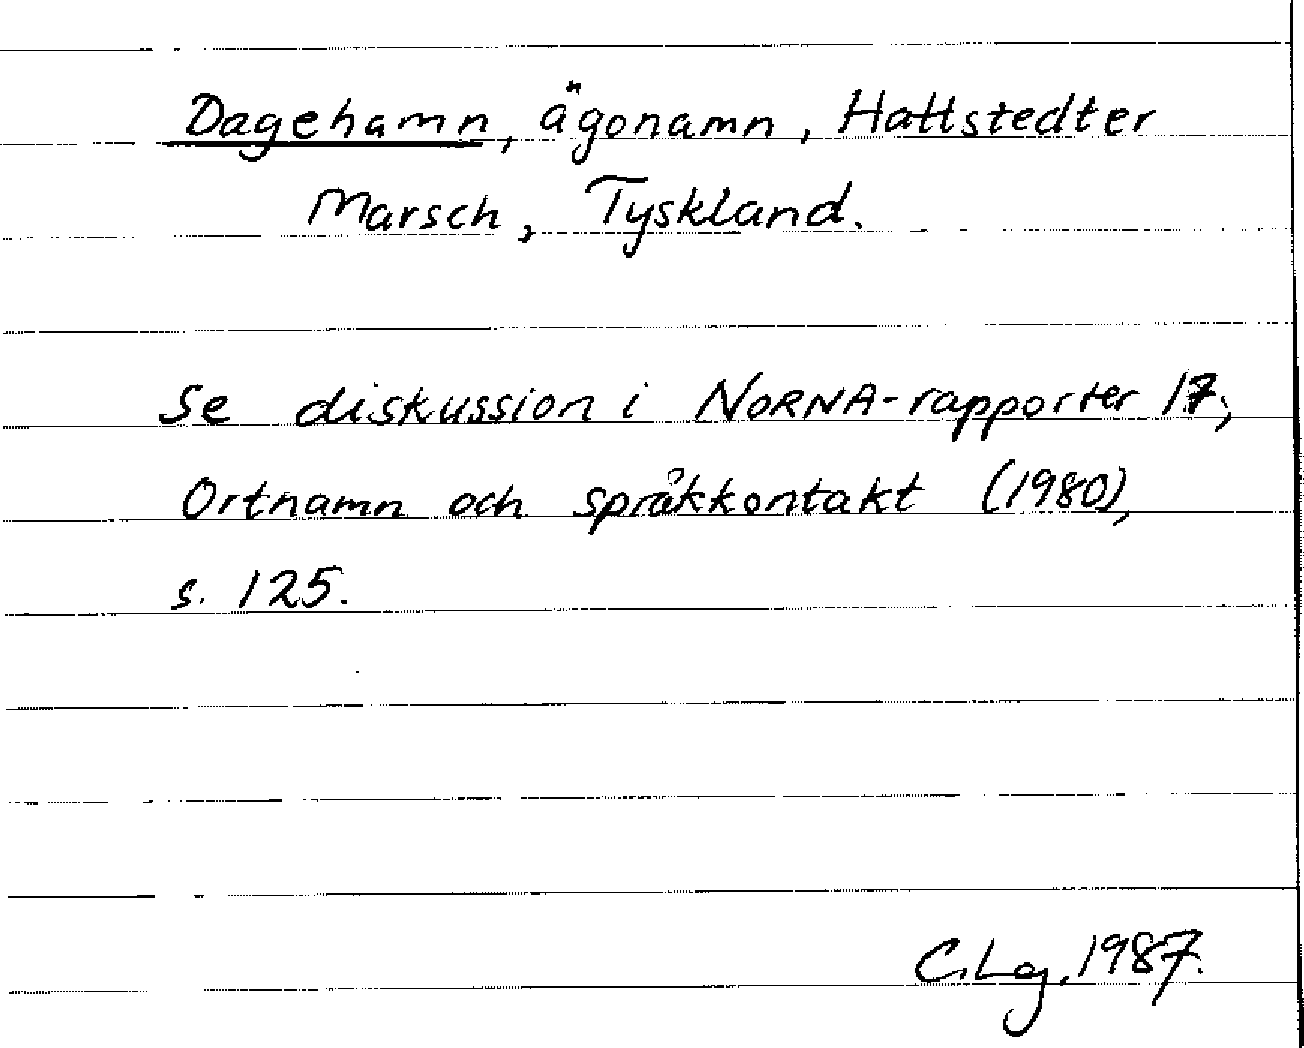 Dagehamn, ägonamn, Hattstedter
Marsch, Tyskland.
Se diskussion i NORNA-rapporter 17,
Ortnamn och språkkontakt (1980),
s. 125.
C.Lg, 1987.